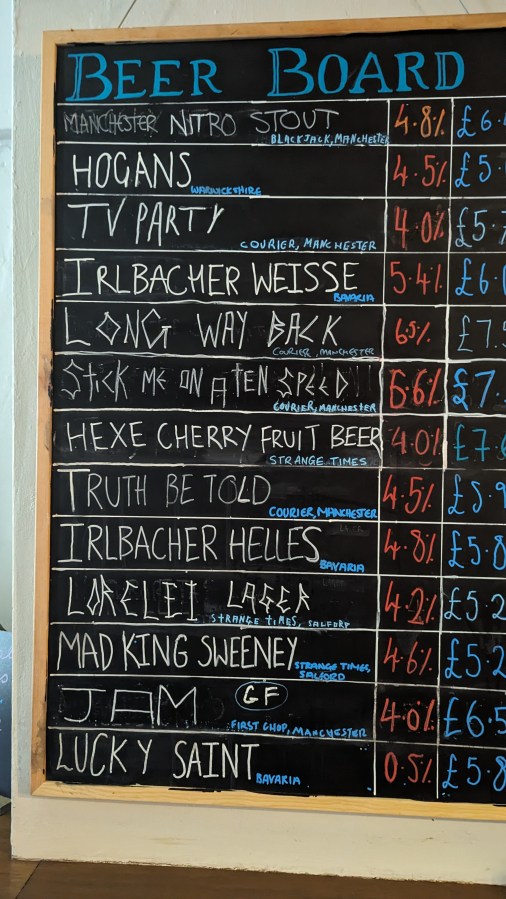 BEER BOARD
MANCHESTER NITRO STOUT 4.8% £6.
BLACKJACK, MANCHESTER
HOGANS 4.5% £5.
WARWICKSHIRE
TV PARTY 4.0% £5.7
COURIER, MANCHESTER
IRLBACHER WEISSE 5.4% £6.
BAVARIA
LONG WAY BACK 6.5% £7.5
COURIER, MANCHESTER
STICK ME ON A TEN SPEED 6.6% £7.
COURIER, MANCHESTER
HEXE CHERRY FRUIT BEER 4.0% £7.
STRANGE TIMES
TRUTH BE TOLD 4.5% £5.9
COURIER, MANCHESTER
IRLBACHER HELLES 4.8% £5.8
BAVARIA
LORELEI LAGER 4.2% £5.2
STRANGE TIMES, SALFORD
MAD KING SWEENEY 4.6% £5.2
STRANGE TIMES,
SALFORD
JAM GF 4.0% £6.5
FIRST CHOP, MANCHESTER
LUCKY SAINT 0.5% £5.8
BAVARIA